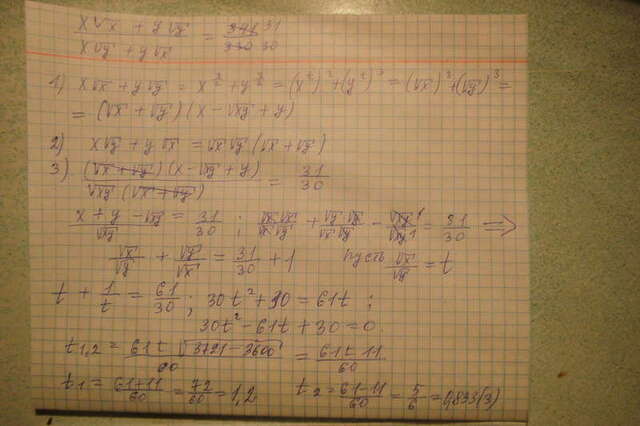 (x√x + y√y)/(x√y + y√x) = 341/330 31/30
1) x√x + y√y = x^(3/2) + y^(3/2) = (x^(1/2))^3 + (y^(1/2))^3 = (√x)^3 + (√y)^3 =
= (√x + √y)(x - √xy + y)
2) x√y + y√x = √x√y(√x + √y)
3) (√x + √y)(x - √xy + y)/(√xy(√x + √y)) = 31/30
(x + y - √xy)/√xy = 31/30 ; √x√x/√x√y + √y√y/√x√y - √xy/√xy = 31/30 =>
√x/√y + √y/√x = 31/30 + 1 пусть √x/√y = t
t + 1/t = 61/30 ; 30t² + 30 = 61t ;
30t² - 61t + 30 = 0
t1,2 = (61 ± √(3721 - 3600))/60 = (61 ± 11)/60
t1 = (61+11)/60 = 72/60 = 1,2 t2 = (61-11)/60 = 5/6 = 0,833(3)